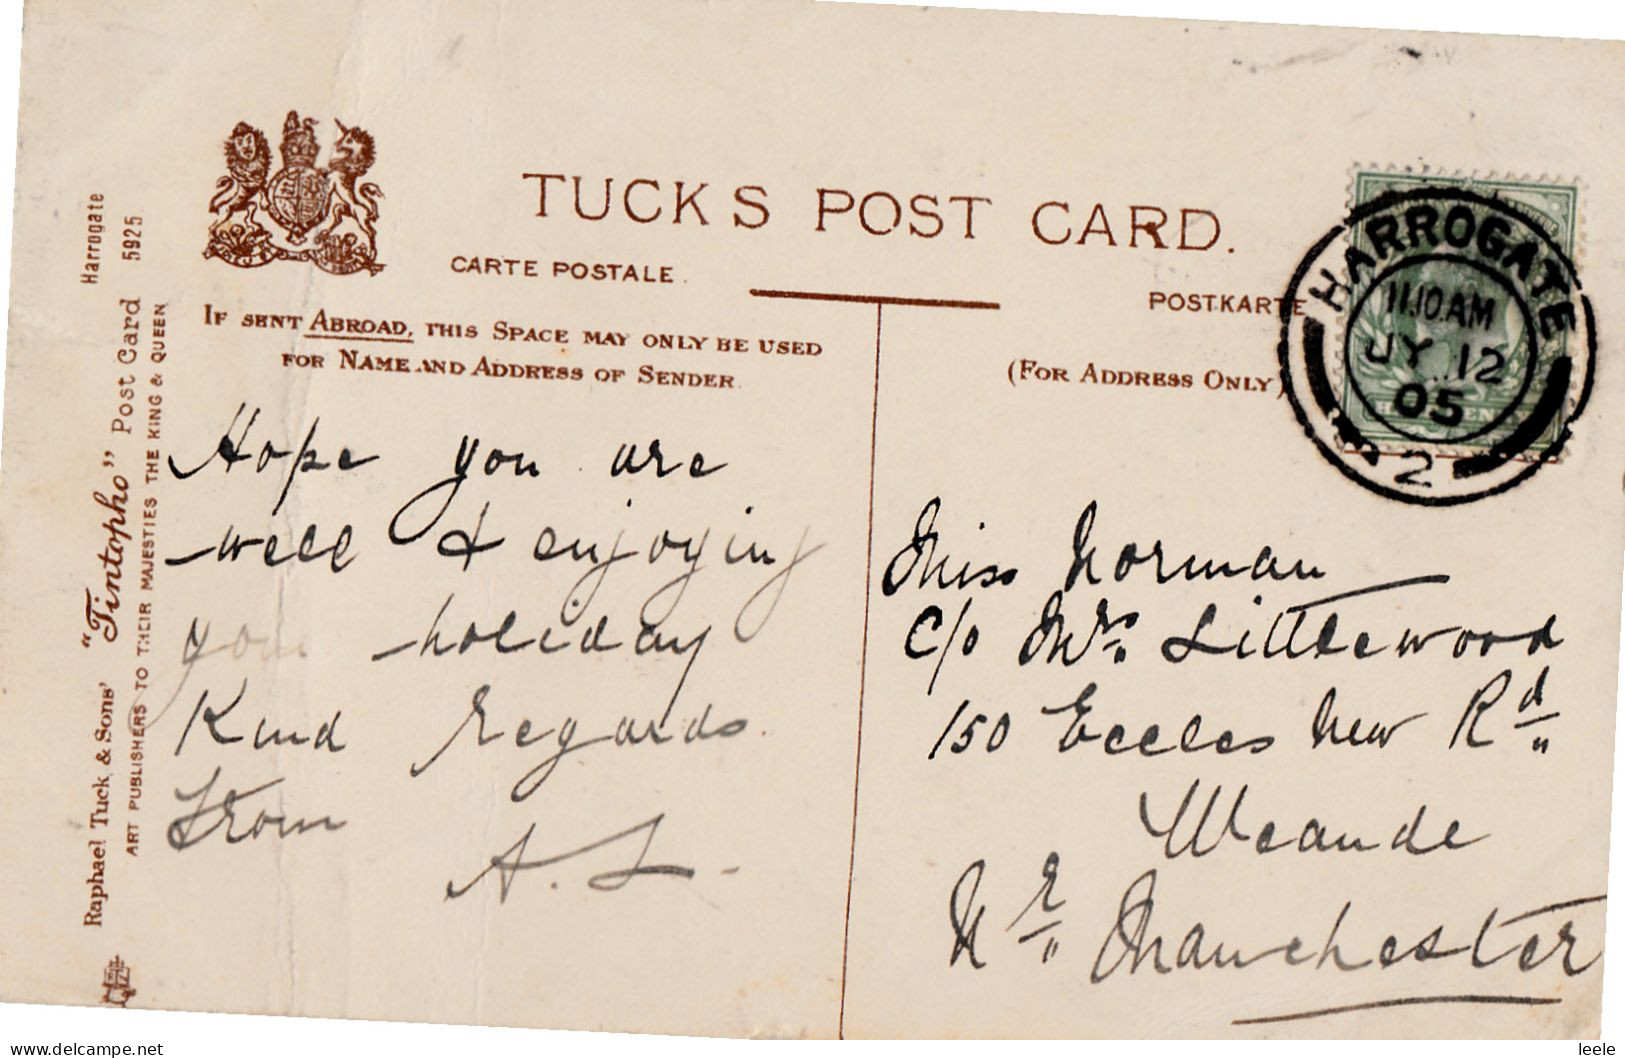 TUCK'S POST CARD.
CARTE POSTALE.
POSTKARTE
IF SENT ABROAD, THIS SPACE MAY ONLY BE USED
FOR NAME AND ADDRESS OF SENDER.
(FOR ADDRESS ONLY)
HARROGATE
11.10.AM
JY 12
05
2
Hope you are
well & enjoying
your holiday
Kind regards
from
A. L.
Miss Norman
C/o Mrs Littlewood
150 Eccles New Rd
Weande
Nr Manchester
Raphael Tuck & Sons' "Tintopho" Post Card Harrogate
ART PUBLISHERS TO THEIR MAJESTIES THE KING & QUEEN 5925
www.delcampe.net
leele